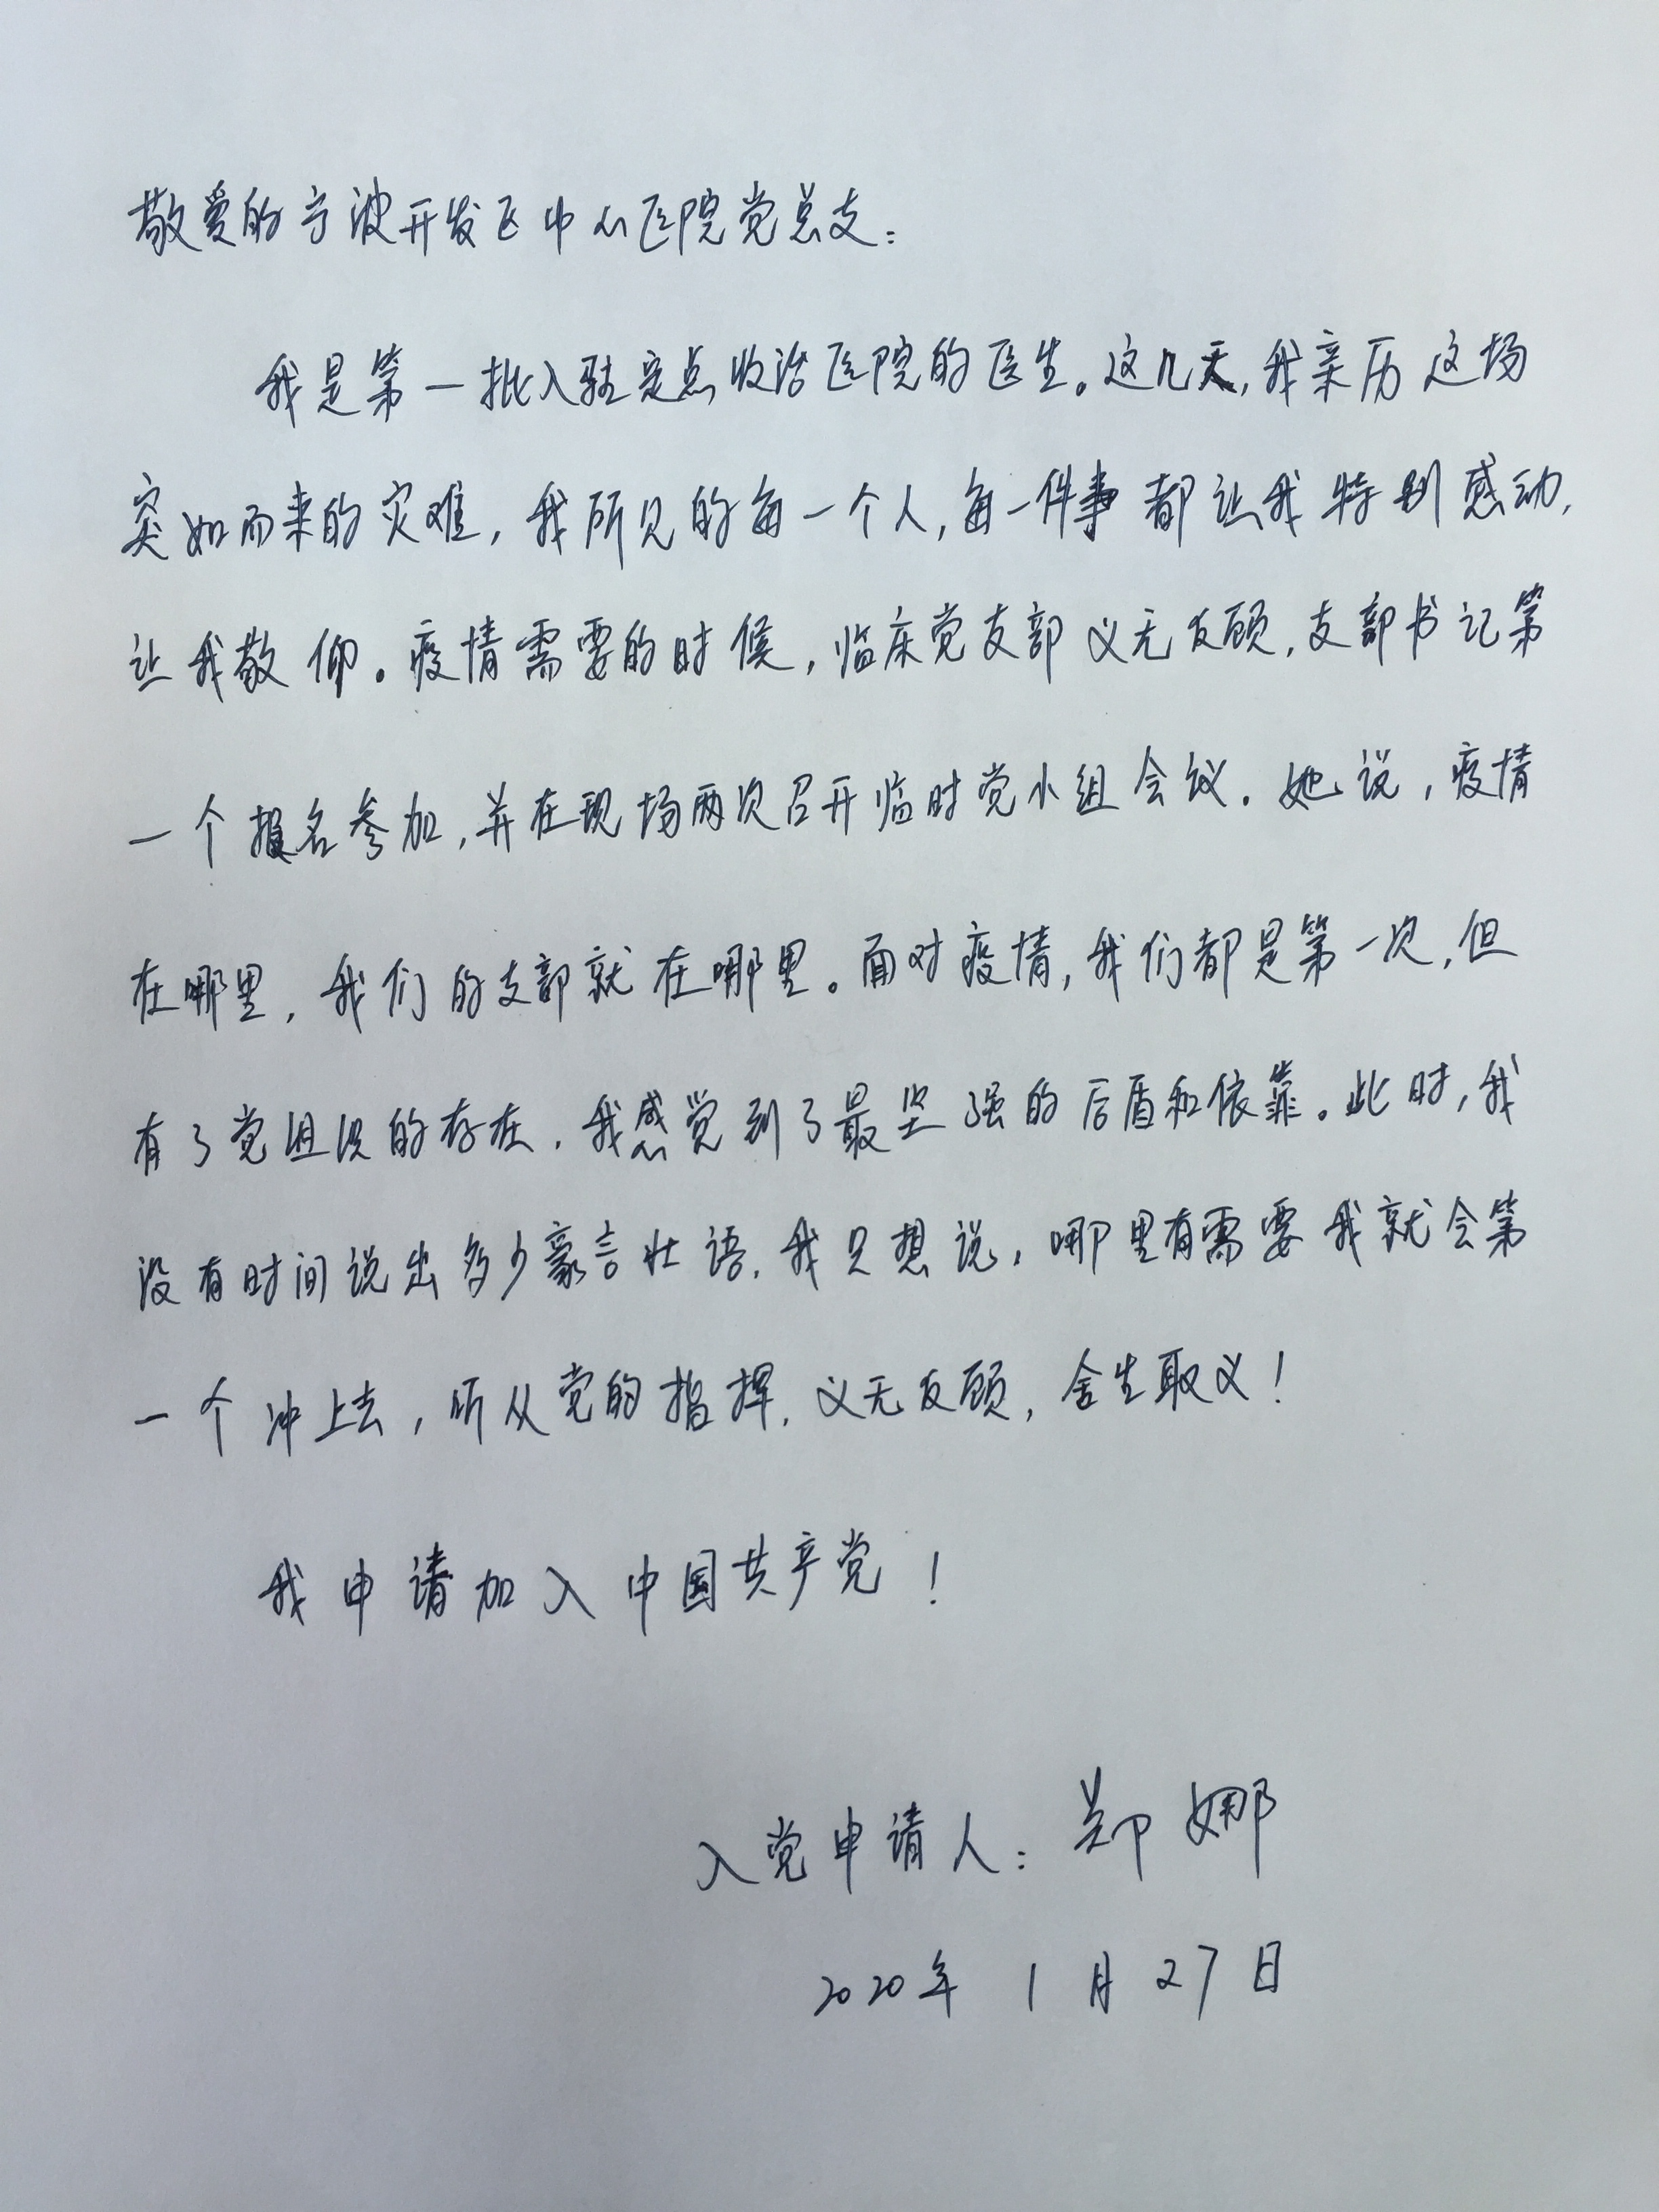 敬爱的宁波开发区中心医院党总支:
我是第一批入驻定点收治医院的医生。这几天,我亲历这场
突如而来的灾难,我所见的每一个人,每一件事都让我特别感动,
让我敬仰。疫情需要的时候,临床党支部义无反顾,支部书记第
一个报名参加,并在现场两次召开临时党小组会议。她说,疫情
在哪里,我们的支部就在哪里。面对疫情,我们都是第一次,但
有了党组织的存在,我感觉到了最坚强的后盾和依靠。此时,我
没有时间说出多少豪言壮语,我只想说,哪里有需要我就会第
一个冲上去,听从党的指挥,义无反顾,舍生取义!
我申请加入中国共产党!
入党申请人:郑娜
2020年1月27日